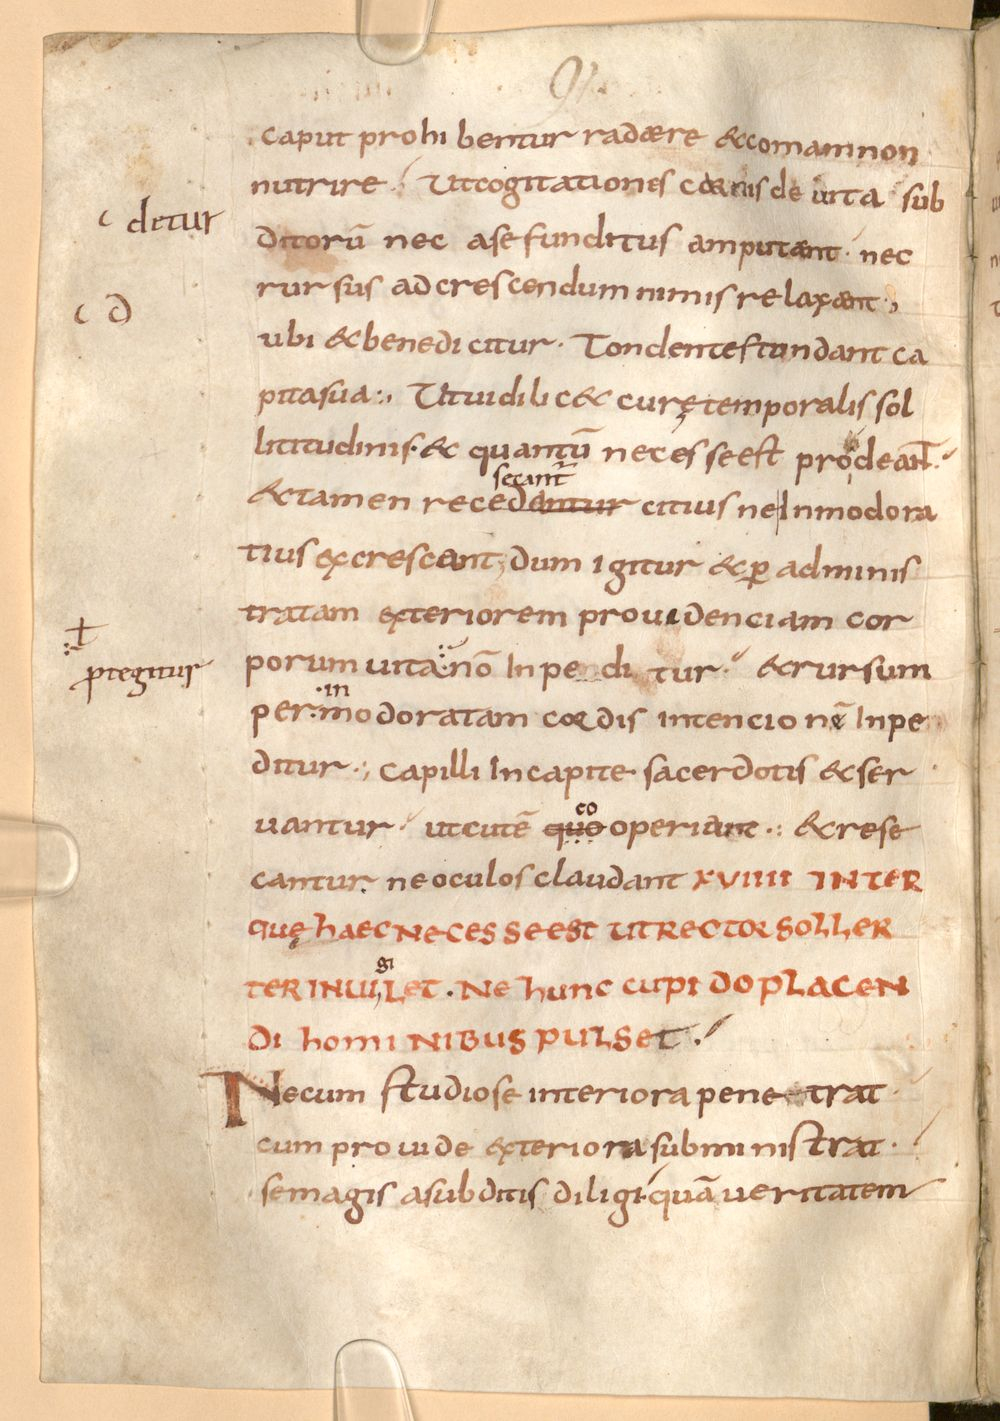 caput prohibentur radaere & comam non
nutrire. Ut cogitationes carnis de uita sub
ditorū nec a se funditus amputant. nec
rursus ad crescendum nimis relaxent.,
ubi & bene dicitur. Tondentes tundant ca
pita sua:, Ut uidilic& curę temporalis sol
lititudinis. & quantū necesse est prodeant̄.
secant̄
& tamen recedentur citius ne Inmodora
tius excrescant; dum igitur & ꝑ adminis
tratam exteriorem prouidenciam cor
porum uita nō Inpenditur. & rursum
in
per modoratam cordis intencionē Inpe
ditur.; capilli In capite sacerdotis & ser
co
uantur. ut cutē quo operiant.: & rese
cantur. ne oculos claudant XVIIII INTER
quę haec NECESSE EST UT RECTOR SOLLER
gi
TER INUILET. NE hunc cupIDO PLACEN
DI homINIBUS PULSET.
Nec cum studiose interiora penetrat.
cum prouide exteriora subministrat.
se magis a subditis diligi quā ueritatem
ditur
c d
ꝓtegitur